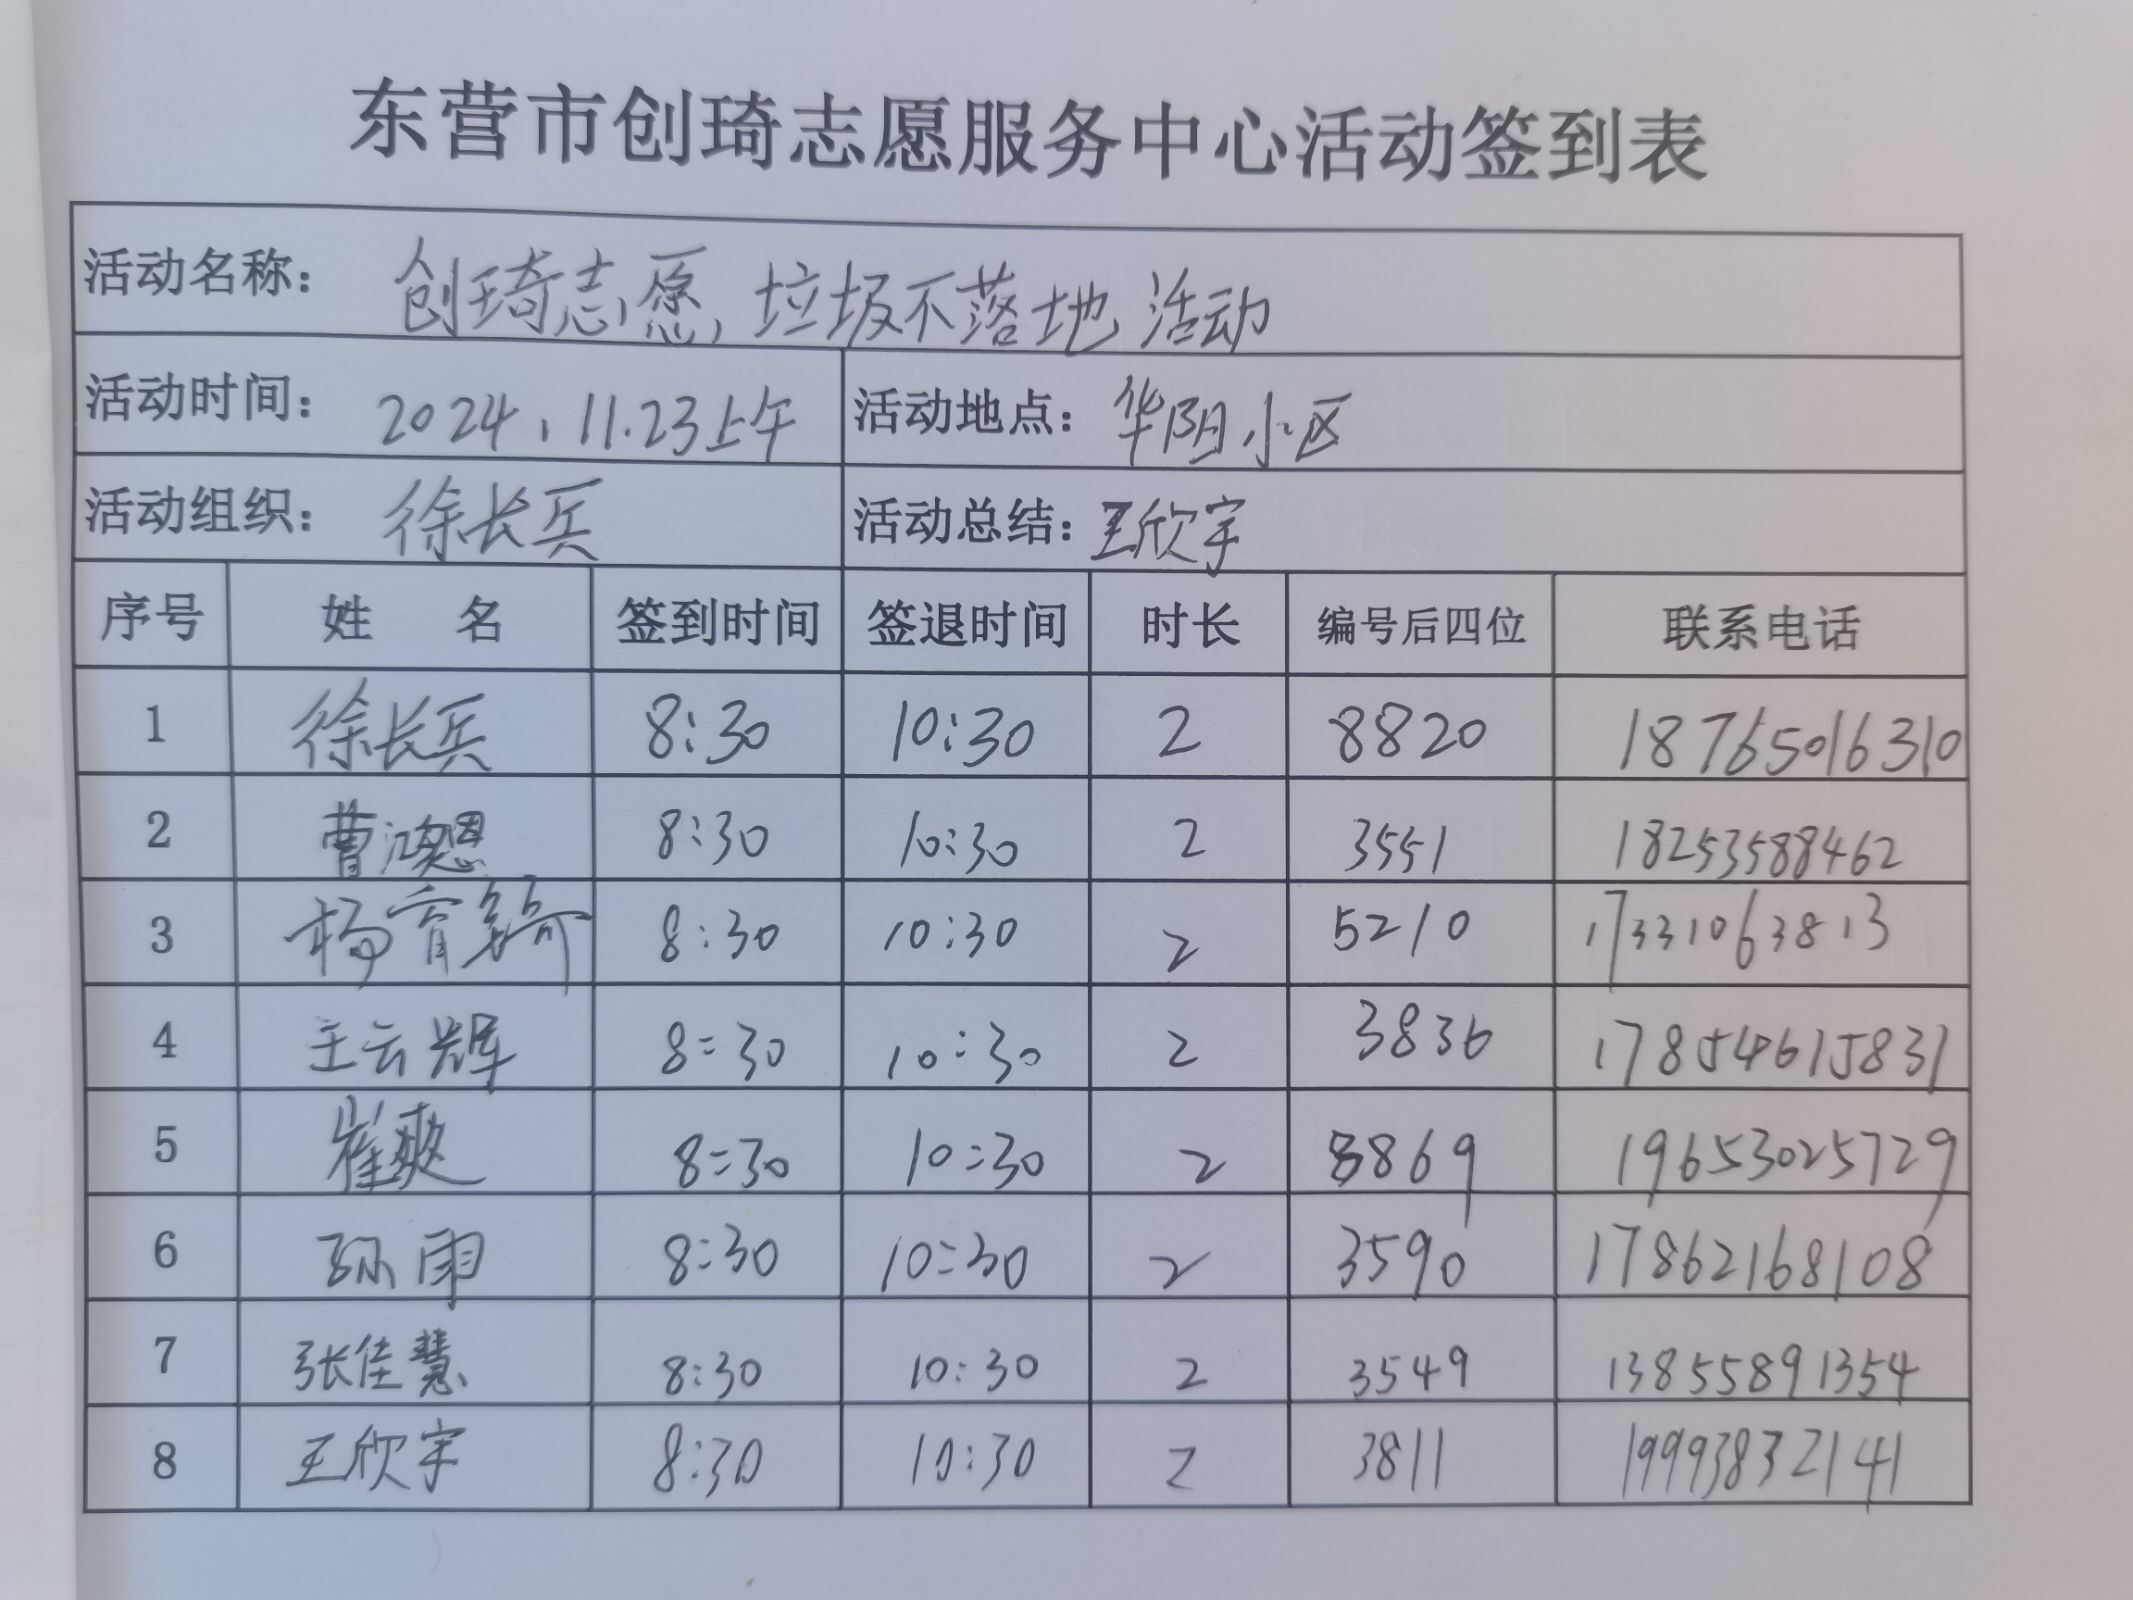 东营市创琦志愿服务中心活动签到表
活动名称： 创琦志愿, 垃圾不落地 活动
活动时间： 2024、11.23上午 活动地点： 华阳小区
活动组织： 徐长兵 活动总结： 王欣宇
序号 姓名 签到时间 签退时间 时长 编号后四位 联系电话
1 徐长兵 8:30 10:30 2 8820 18765016310
2 曹鸿恩 8:30 10:30 2 3551 18253588462
3 杨 8:30 10:30 2 5210 17331063813
4 王云辉 8:30 10:30 2 3836 17854615831
5 崔爽 8:30 10:30 2 8869 19653025729
6 孙雨 8:30 10:30 2 3590 17862168108
7 张佳慧 8:30 10:30 2 3549 13855891354
8 王欣宇 8:30 10:30 2 3811 19993832141